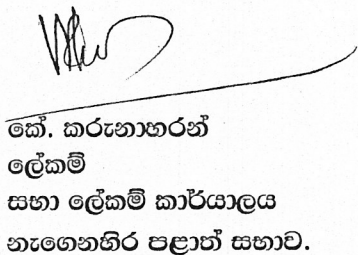 කේ. කරුනාහරන්
ලේකම්
සභා ලේකම් කාර්යාලය
නැගෙනහිර පළාත් සභාව.